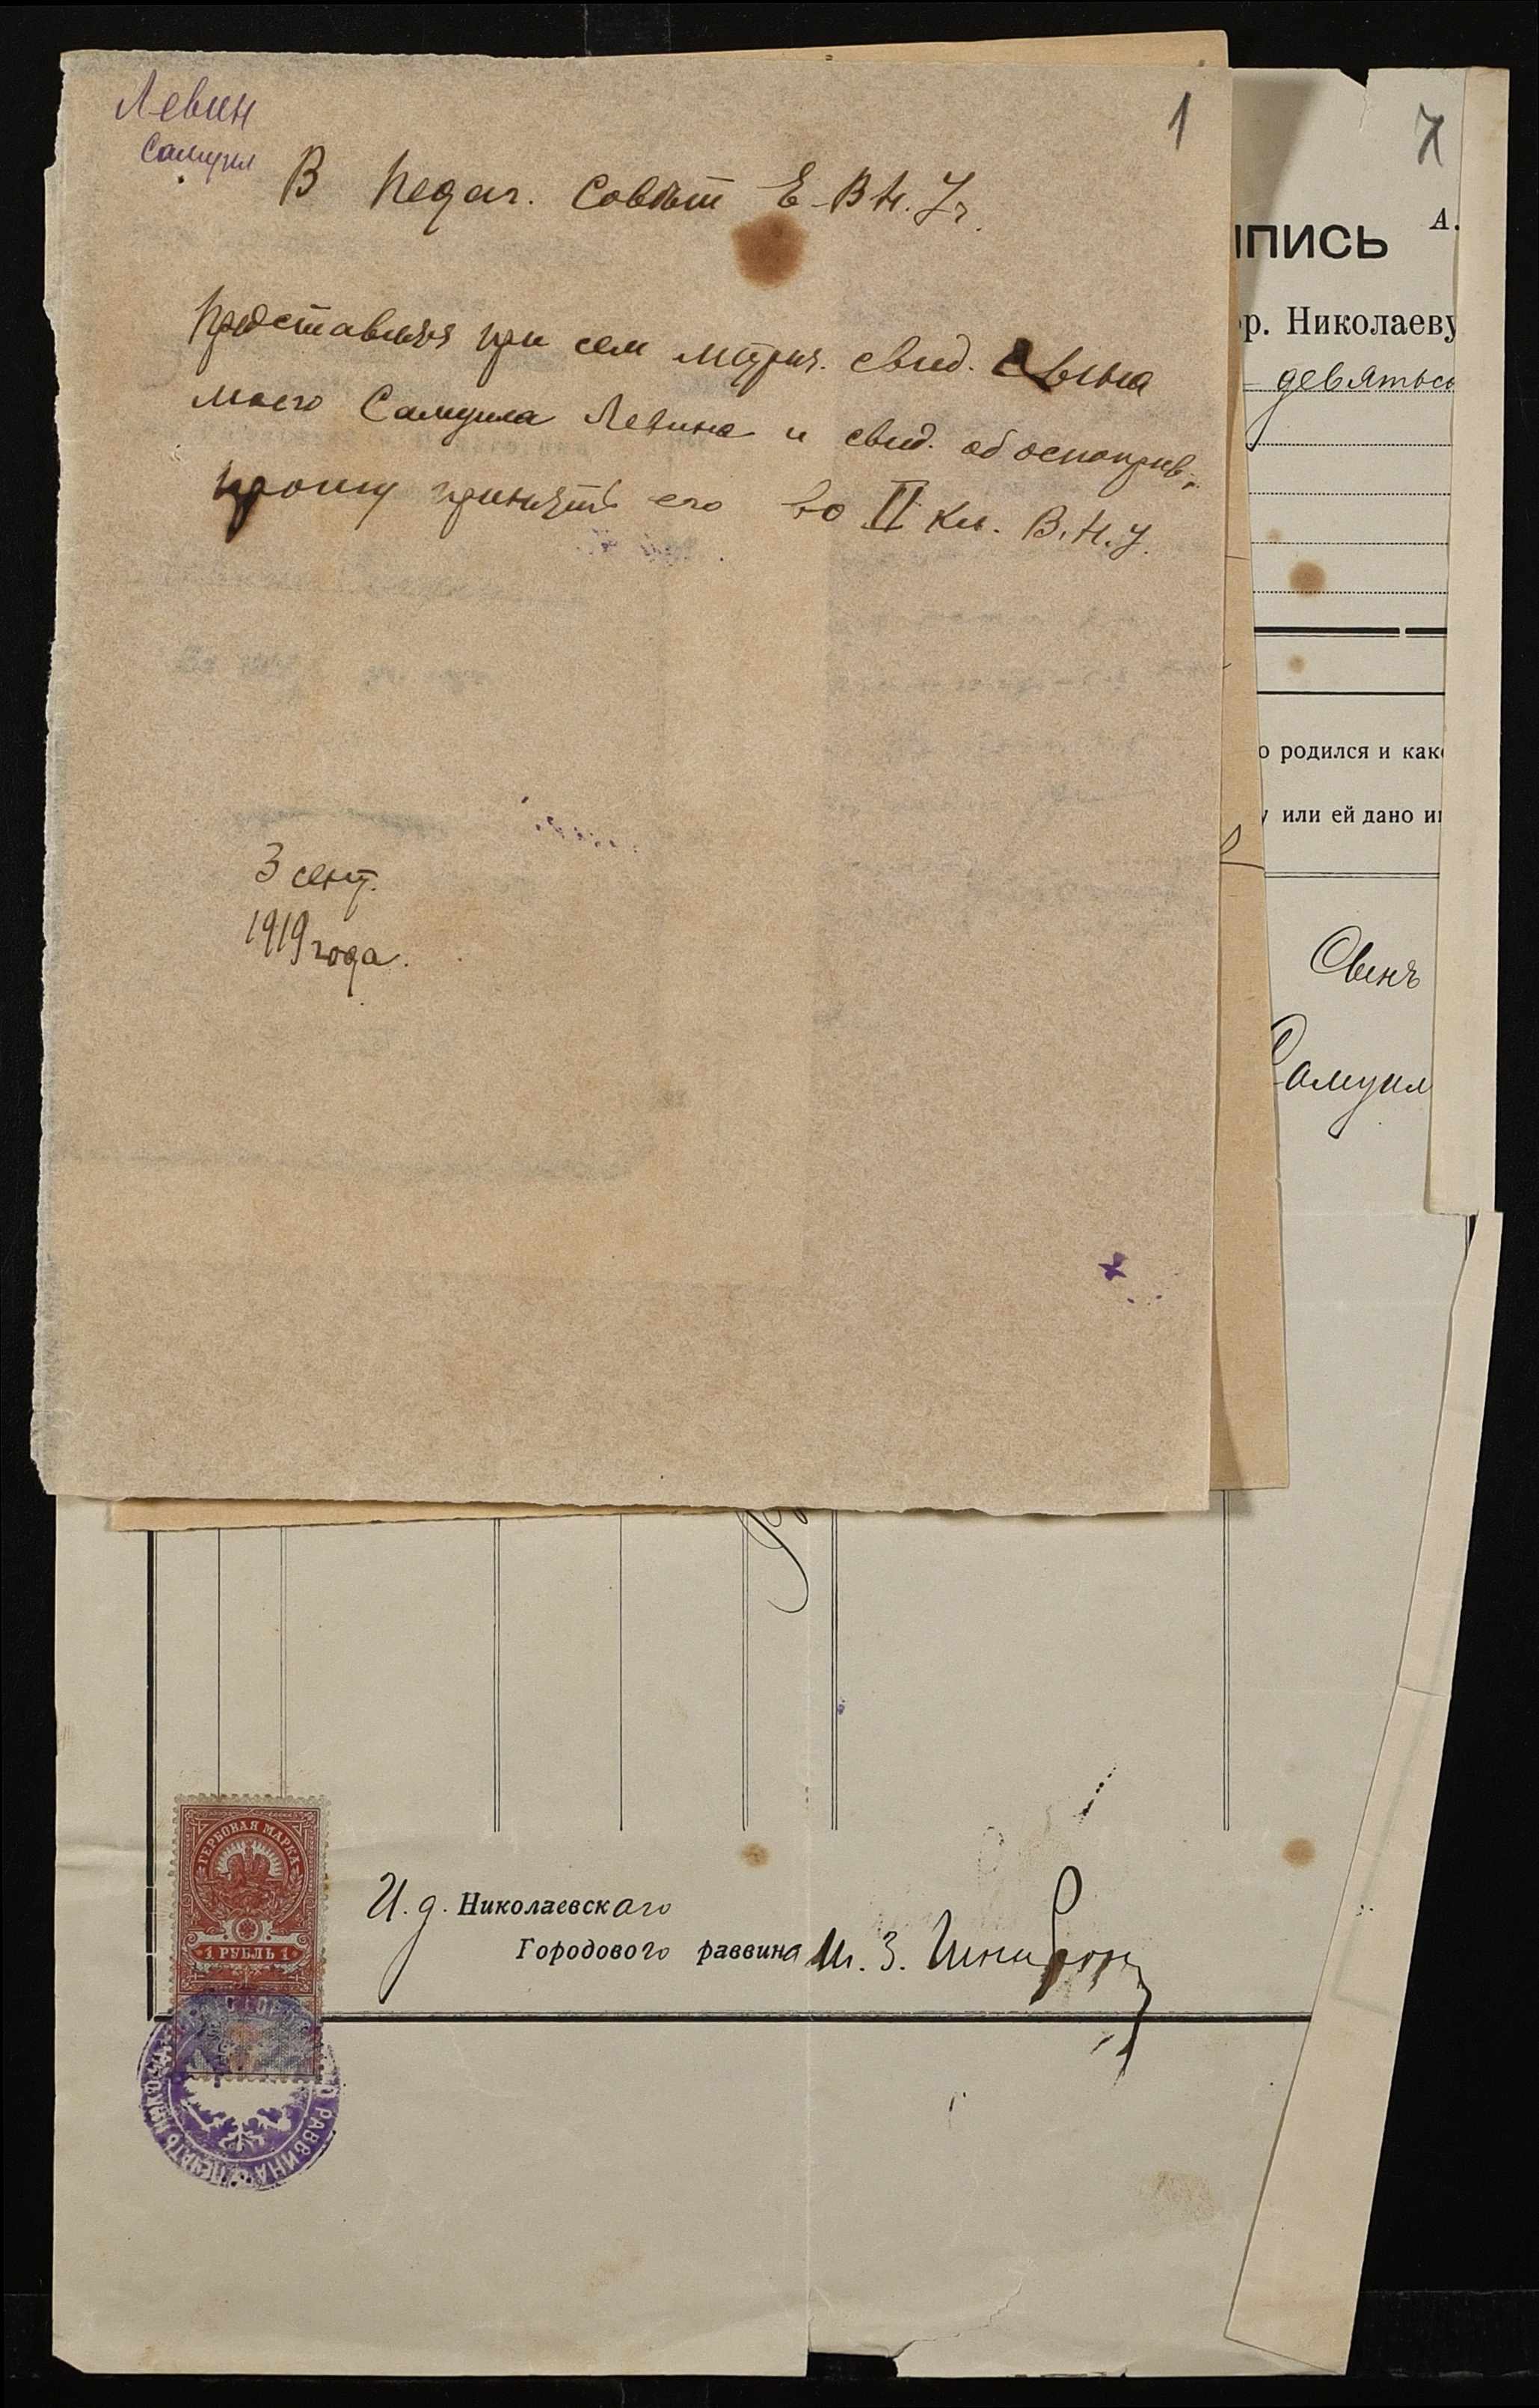 Левин
Самуил
1
В Педаг. Совѣт Е-В Н. Уч.
Представляя при сем метрич. свид. сына
моего Самуила Левина и свид. об оспоприв.,
прошу принять его во II кл. В. Н. У.
3 сент.
1919 года.
7
А.
ПИСЬ
р. Николаеву
девятьсо
о родился и как
у или ей дано и
Сынъ
Самуил
ГЕРБОВАЯ МАРКА
1 РУБЛЬ 1
И. д. Николаевскаго
Городового раввина
РАВВИНА ПЕЧАТЬ